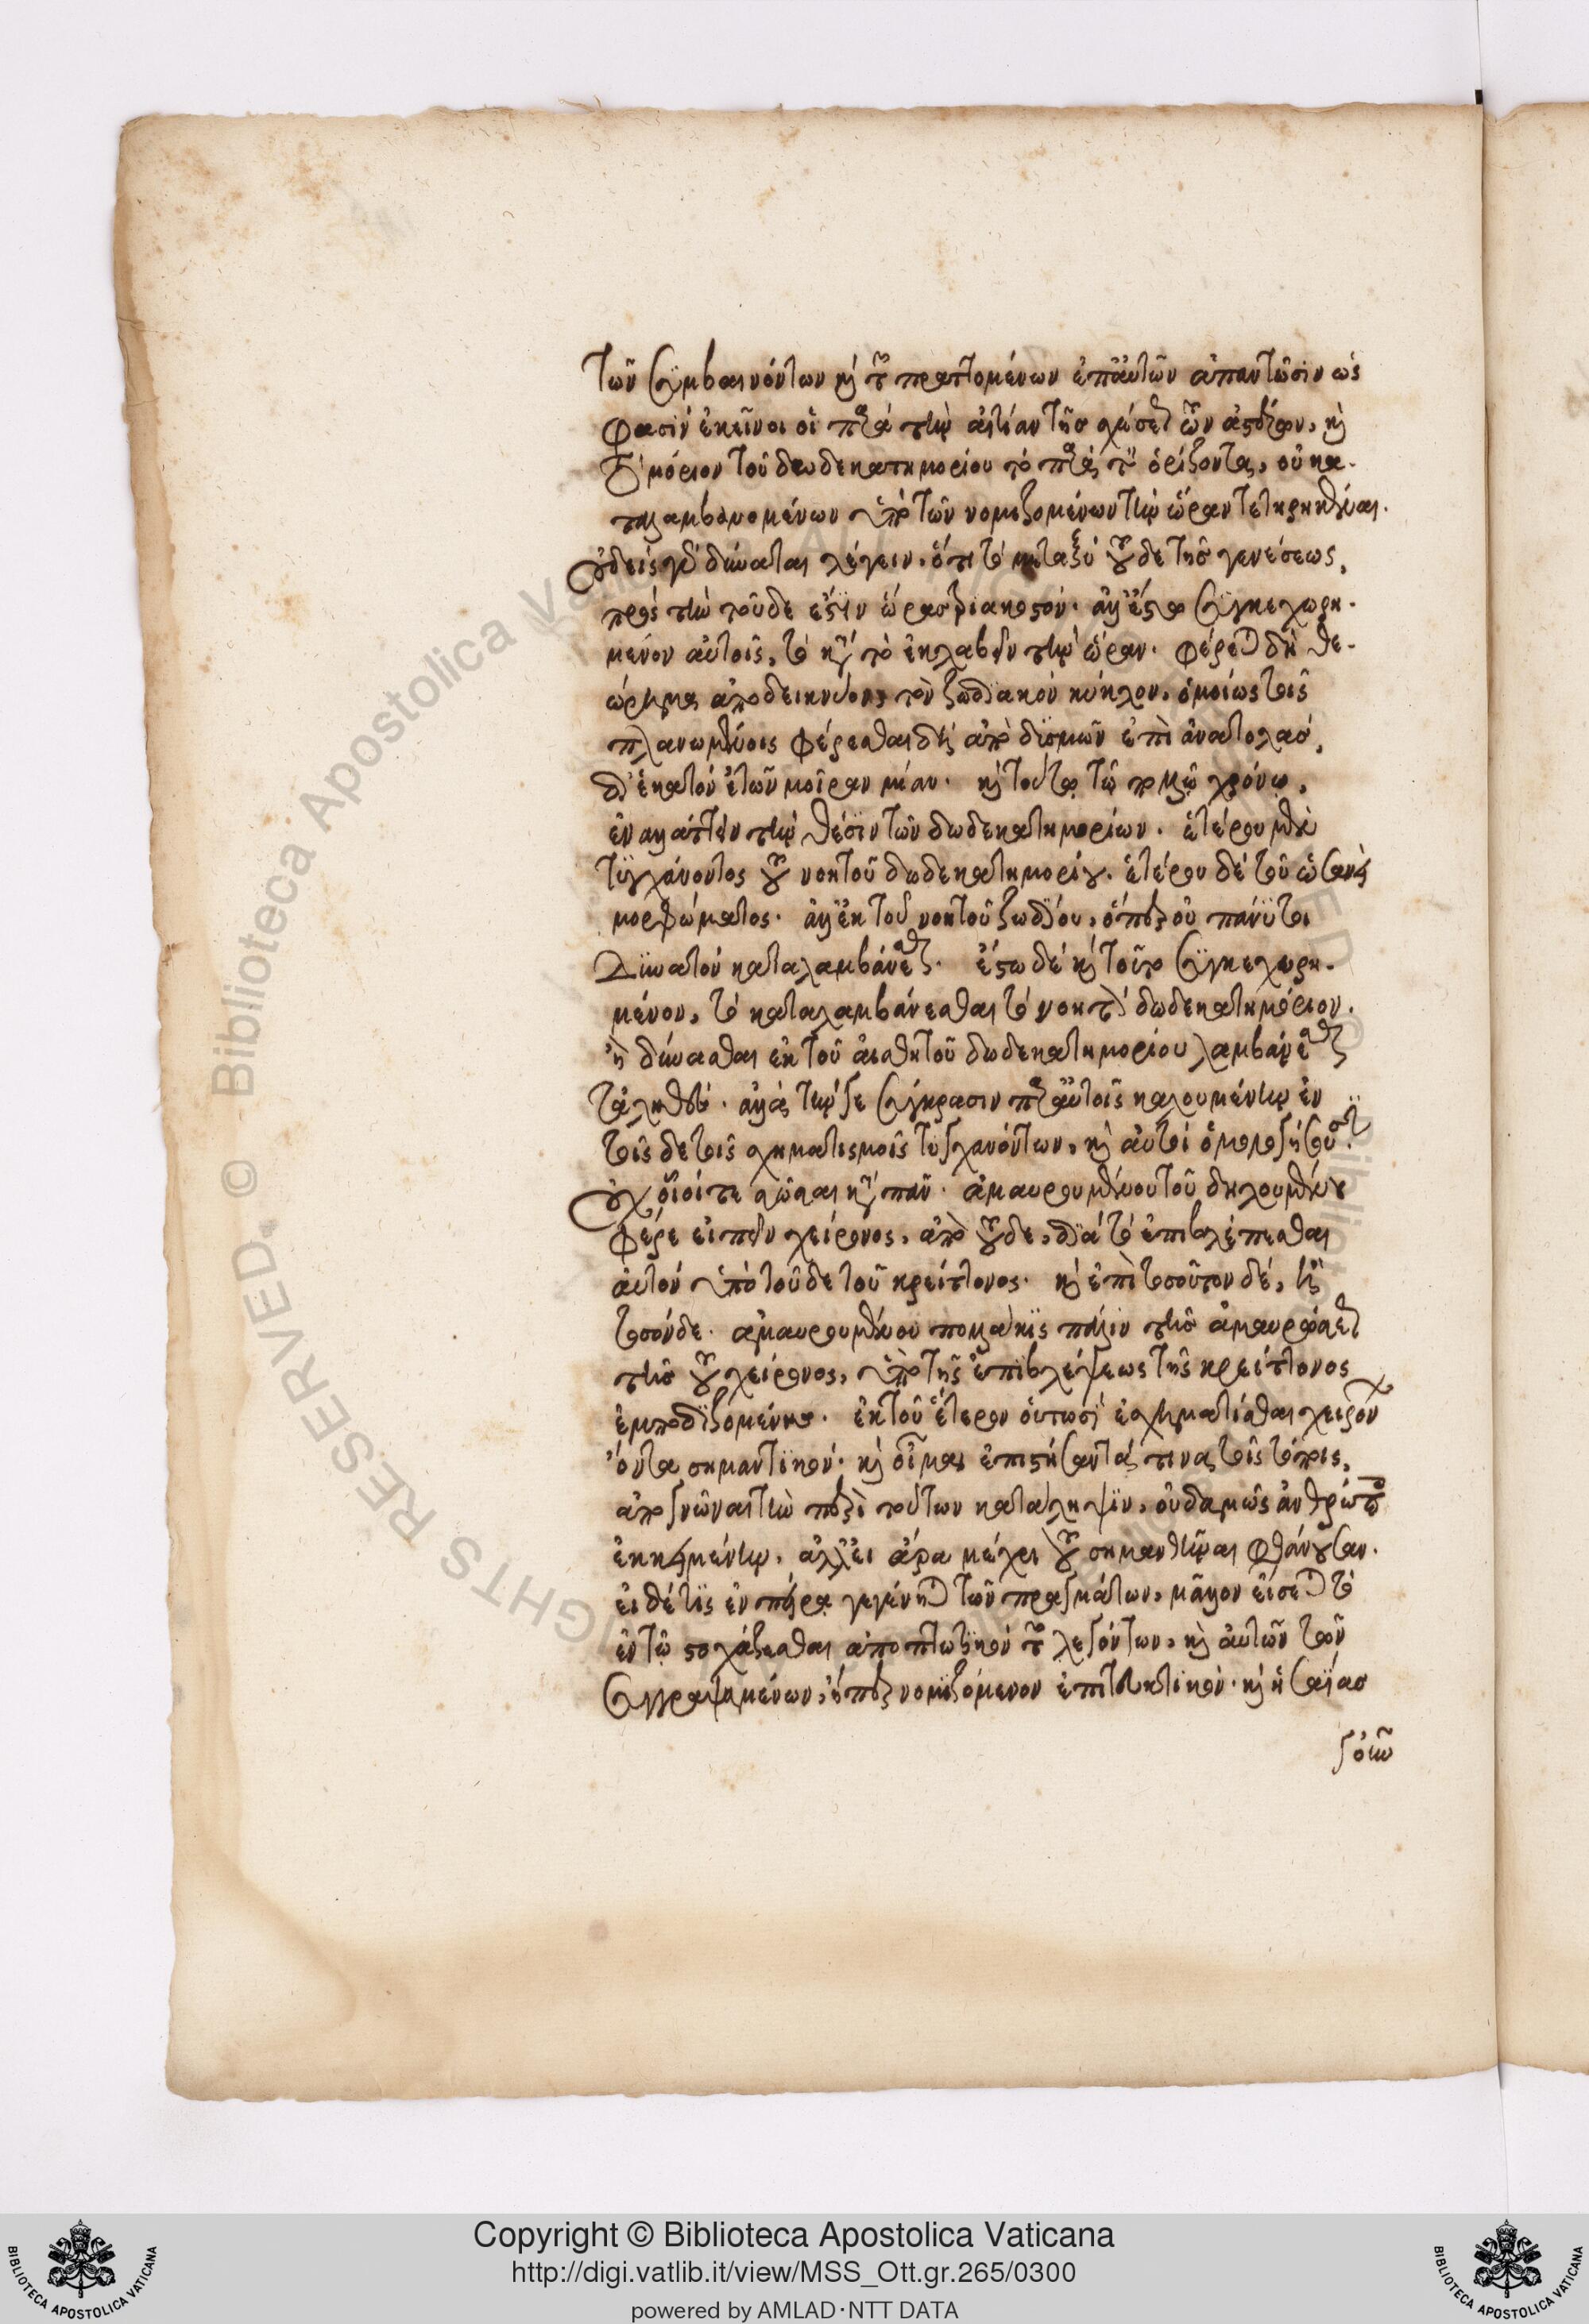 τῶν συμβαινόντων καὶ τῶν πραττομένων ἐπ' αὐτῶν ἀπαντῶσιν ὡς
φασὶν ἐκεῖνοι οἱ παρὰ τὴν αἰτίαν τῆς σχέσεως τῶν ἀστέρων, καὶ
τὸ μόριον τοῦ δωδεκατημορίου τὸ παρὰ τὸν ὁρίζοντα, οὐ κα-
ταλαμβανομένων ὑπὸ τῶν νομιζομένων τὴν ὥραν τετηρηκέναι.
οὐδεὶς γὰρ δύναται λέγειν, ὅτι τὸ μεταξὺ τοῦδε τῆς γενέσεως,
πρὸς τὴν τοῦδε ἐστὶν ὥρας τριακοστόν. ἀλλ' ἔστω συγκεχωρη-
μένον αὐτοῖς, τὸ κατὰ τὸ ἐκλαβεῖν τὴν ὥραν. φέρεται δὴ θε-
ώρημα ἀποδεικνύον τὸν ζωδιακὸν κύκλον, ὁμοίως τοῖς
πλανωμένοις φέρεσθαι ἀπὸ δυσμῶν ἐπὶ ἀνατολὰς,
δι' ἑκατὸν ἐτῶν μοῖραν μίαν. καὶ τοῦτο τῷ πολλῷ χρόνῳ,
ἐναλλάττειν τὴν θέσιν τῶν δωδεκατημορίων. ἑτέρου μὲν
τυγχάνοντος τοῦ νοητοῦ δωδεκατημορίου. ἑτέρου δὲ τοῦ ὡσανεὶ
μορφώματος. ἀλλ' ἐκ τοῦ νοητοῦ ζωδίου, ὅπερ οὐ πάνυ τι
δυνατὸν καταλαμβάνεσθαι. ἔστω δὲ καὶ τοῦτο συγκεχωρη-
μένον, τὸ καταλαμβάνεσθαι τὸ νοητὸν δωδεκατημόριον.
ἢ δύνασθαι ἐκ τοῦ αἰσθητοῦ δωδεκατημορίου λαμβάνεσθαι
τἀληθές. ἀλλὰ τήν γε σύγκρασιν παρ' αὐτοῖς καλουμένην ἐν
τοῖς δε τοῖς σχηματισμοῖς τυγχανόντων, καὶ αὐτοὶ ὁμολογήσουσιν.
οὐχ οἷοί τε σῶσαι κατὰ πᾶν. ἀμαυρουμένου τοῦ δηλουμένου
φέρε εἰπεῖν χείρονος, ἀπὸ τοῦδε, διὰ τὸ ἐπιβλέπεσθαι
αὐτὸν ὑπὸ τοῦδε τοῦ κρείττονος. καὶ ἐπὶ τοσοῦτον δέ, ἢ
τοσόνδε. ἀμαυρουμένου πολλάκις πάλιν τῆς ἀμαυρώσεως
τῆς τοῦ χείρονος, ὑπὸ τῆς ἐπιβλέψεως τῆς κρείττονος
ἐμποδιζομένης. ἐκ τοῦ ἕτερον οὑτωσὶ ἐσχηματίσθαι χειρόνων
ὄντα σημαντικόν. καὶ οἶμαι ἐπιστήσαντάς τινας τοῖς τόποις,
ἀπογνῶναι τὴν περὶ τούτων κατάληψιν, οὐδαμῶς ἀνθρώποις
ἐκκειμένην. ἀλλ' εἰ ἄρα μέχρι τοῦ σημανθῆναι φθάνουσαν.
εἰ δέ τις ἐν πείρᾳ γεγένηται τῶν πραγμάτων, μᾶλλον εἴσεται τὸ
ἐν τῷ στοχάζεσθαι ἀποπτωτικὸν τῶν λεγόντων, καὶ αὐτῶν τῶν
συγγραψαμένων, ἤπερ νομιζόμενον ἐπιτευκτικόν. καὶ ἡσαΐας
γοῦν
Copyright © Biblioteca Apostolica Vaticana
http://digi.vatlib.it/view/MSS_Ott.gr.265/0300
powered by AMLAD·NTT DATA